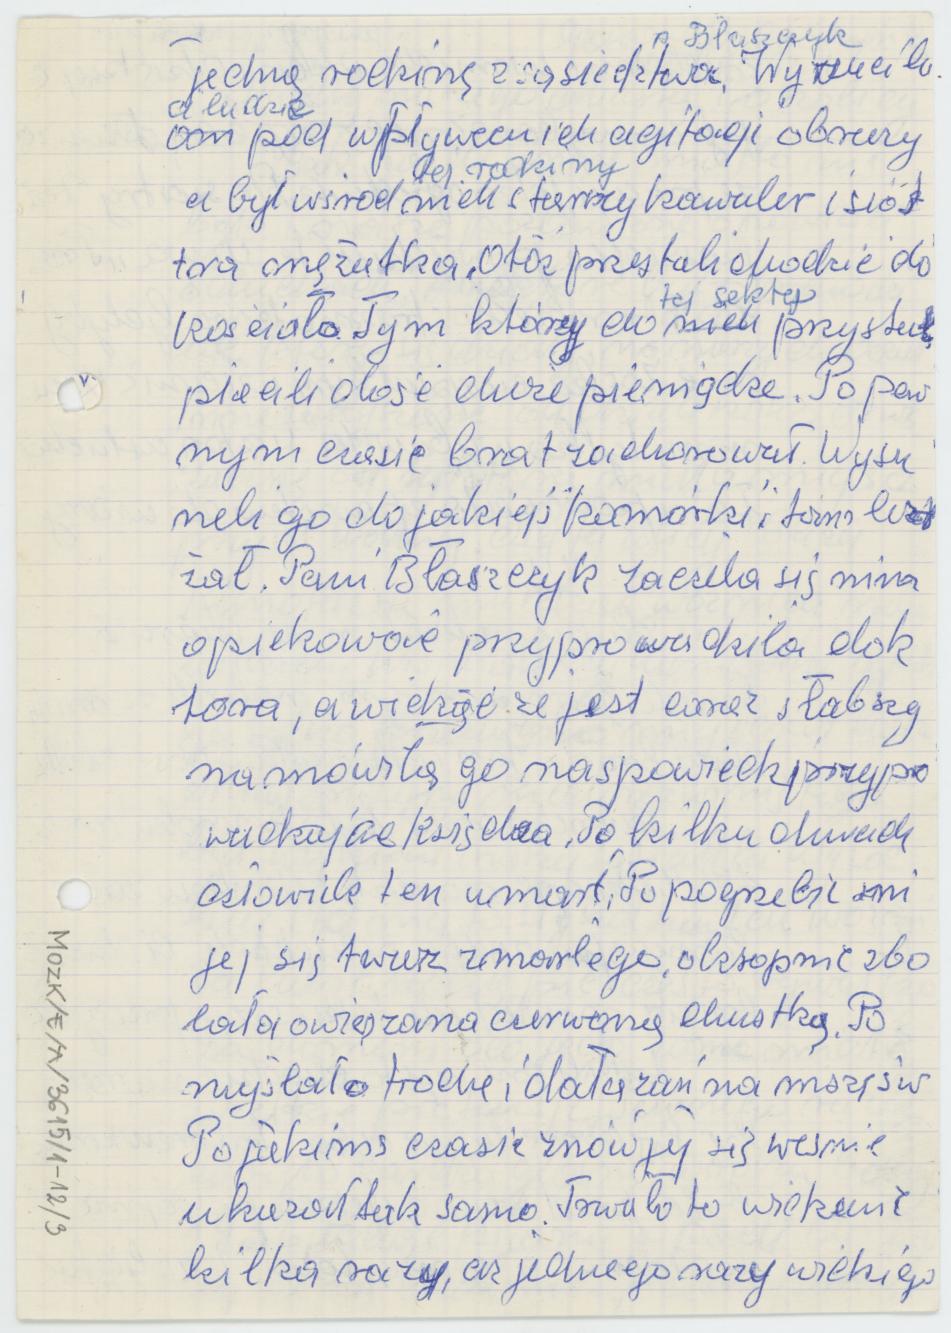 p. Błaszczyk
jedną rodzinę z sąsiedztwa. Wyrzucili
ci ludzie
oni pod wpływem ich agitacji obrazy
tej rodziny
a był wśród nich starszy kawaler i sios
tra mężatka. Otóż przestali chodzić do
tej sekty
kościoła. Tym którzy do nich przystali
płacili dość duże pieniądze. Po pew
nym czasie brat zachorował. Wysu
neli go do jakiejś komórki i tam leż
żał. Pani Błaszczyk zaczeła się nim
opiekować przyprowadziła dok
tora, a widząc że jest coraz słabszy
namówiłą go na spowiedź przypro
wadzając księdza. Po kilku dniach
człowiek ten umarł. Po pogrzebie śni
jej się twarz zmarłego, okropnie zbo
lała owiązana czerwoną chustką. Po
myślała trochę i dała zań na mszę św
Po jakimś czasie znów jej się we śnie
ukazał tak samo. Trwało to
kilka razy, aż jednego razy widzi go
MOZK/E/A/3615/1-12/3